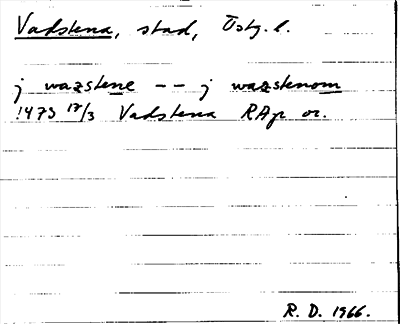 Vadstena, stad, Östg. l.
j wazstene -- j wazstenom
1473 17/3 Vadstena RAp or.
R. D. 1966.